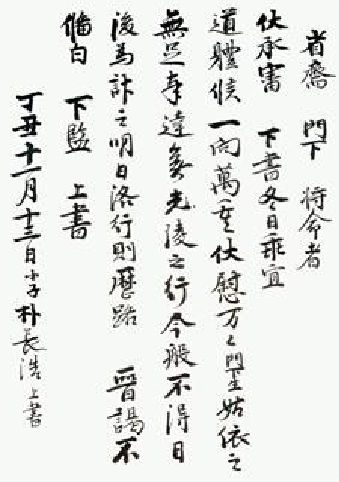 省齋 門下 將命者
伏承審 下書冬日乖宜
道體候一向萬重伏慰万々門生姑依之
無足奉達光陵之行今般不得日
後為計之明日洛行則歷路 晉謁不
備白 下監 上書
丁丑十一月十三日小子朴長浩上書